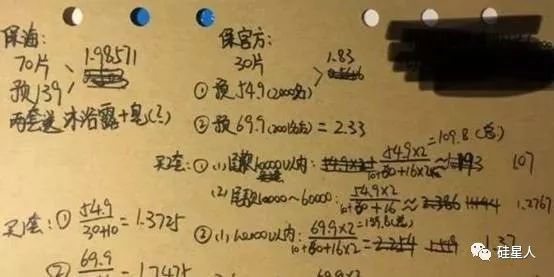 保海: 保官方:
70片 1.98571 30片 1.83
预139 ① 预54.9(2000名)
两套送沐浴露+皂(?) ② 预69.9(200名后)=2.33
买2套: ① (1) 尾款10000以内: 54.9×2/10+80+16×2 =109.8(总) 1.07
(2) 尾款10000~60000: 54.9×2/10+80+16 1.2767
买1套: ① 54.9/30+10=1.3725 ② (1) 60000以内: 69.9×2/10+80+16×2 =139.8(总) 1.37
② 69.9 =1.7475 69.9×2
硅星人